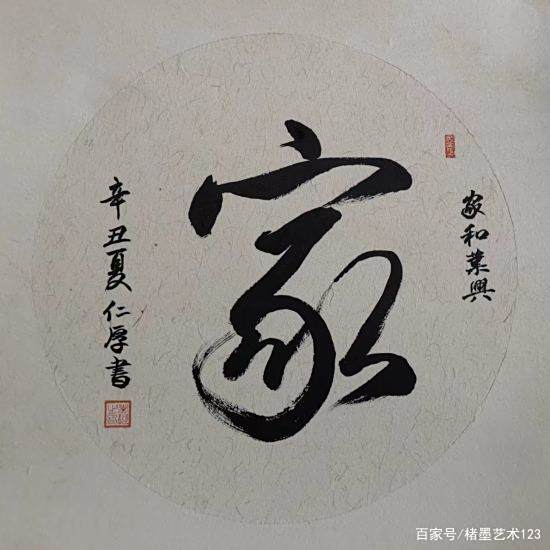 家和業興
家
辛丑夏仁厚書
百家号/楮墨艺术123